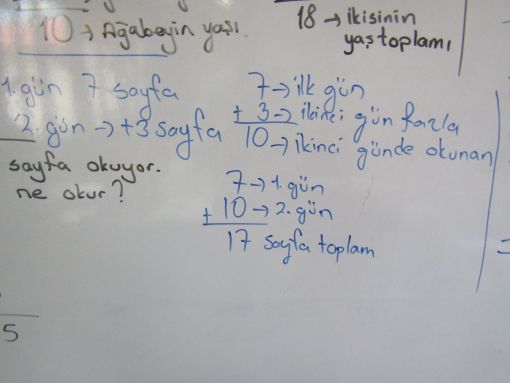 10 → Ağabeyin yaşı.
18 → ikisinin
yaş toplamı
1. gün 7 sayfa
2. gün → +3 sayfa
sayfa okuyor.
ne okur?
7 → ilk gün
+ 3 → ikinci gün fazla
10 → ikinci günde okunan
7 → 1. gün
+ 10 → 2. gün
17 sayfa toplam
5